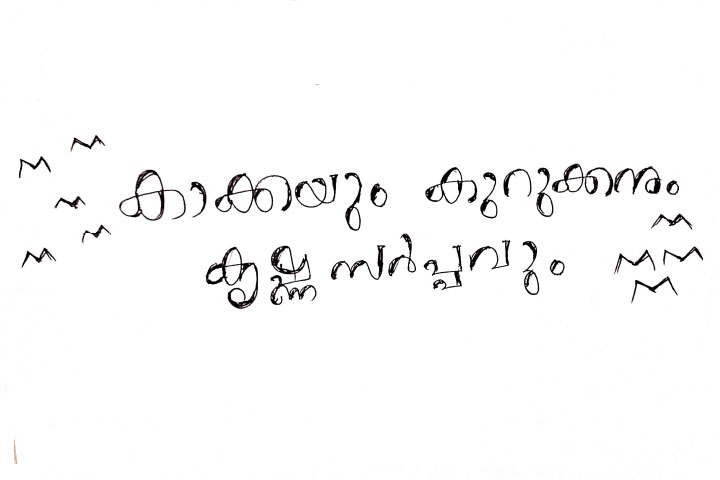 കാക്കയും കുറുക്കനും
കൃഷ്ണസർപ്പവും